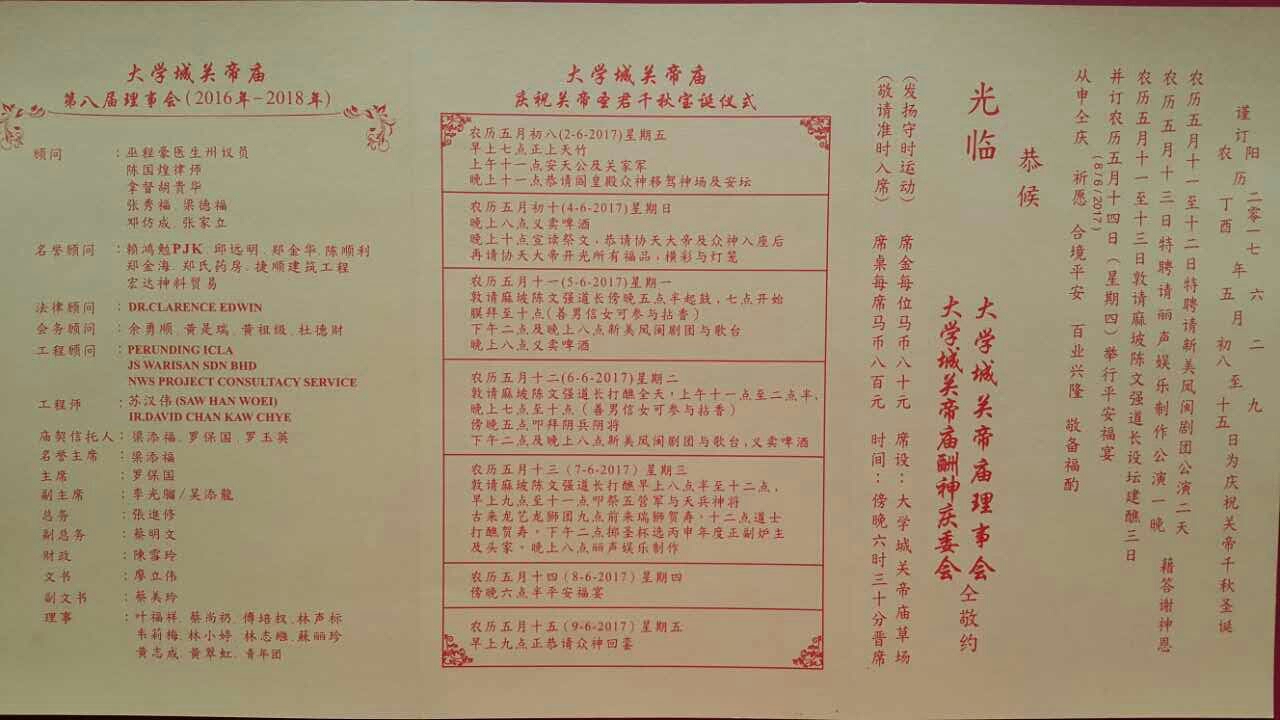 大学城关帝庙
第八届理事会(2016年-2018年)
顾问 :巫程豪医生州议员
陈国煌律师
拿督胡贵华
张秀福、梁德福
邓仿成、张家立
名誉顾问 :赖鸿勉PJK、邱远明、郑金华、陈顺利
郑金海、郑氏药房、捷顺建筑工程
宏达神料贸易
法律顾问 :DR.CLARENCE EDWIN
会务顾问 :余勇顺、黄是瑞、黄祖级、杜德财
工程顾问 :PERUNDING ICLA
JS WARISAN SDN BHD
NWS PROJECT CONSULTACY SERVICE
工程师 :苏汉伟(SAW HAN WOEI)
IR.DAVID CHAN KAW CHYE
庙契信托人:梁添福、罗保国、罗玉英
名誉主席 :梁添福
主席 :罗保国
副主席 :李光腦/吴添龍
总务 :张進修
副总务 :蔡明文
财政 :陳雪玲
文书 :廖立伟
副文书 :蔡美玲
理事 :叶福祥、蔡尚礽、傅培权、林声标
韦莉梅、林小婷、林志雄、蘇丽珍
黄志成、黄翠虹、青年团
大学城关帝庙
庆祝关帝圣君千秋宝诞仪式
农历五月初八(2-6-2017)星期五
早上七点正上天竹
上午十一点安天公及关家军
晚上十一点恭请阎皇殿众神移驾神场及安坛
农历五月初十(4-6-2017)星期日
晚上八点义卖啤酒
晚上十点宣读祭文,恭请协天大帝及众神八座后
再请协天大帝开光所有福品,横彩与灯笼
农历五月十一(5-6-2017)星期一
敦请麻坡陈文强道长傍晚五点半起鼓,七点开始
膜拜至十点(善男信女可参与拈香)
下午二点及晚上八点新美凤闽剧团与歌台
晚上八点义卖啤酒
农历五月十二(6-6-2017)星期二
敦请麻坡陈文强道长打醮全天,上午十一点至二点半,
晚上七点至十点(善男信女可参与拈香)
傍晚五点叩拜阴兵阴将
下午二点及晚上八点新美凤闽剧团与歌台,义卖啤酒
农历五月十三(7-6-2017)星期三
敦请麻坡陈文强道长打醮早上八点半至十二点,
早上九点至十一点叩祭五营军与天兵神将
古来龙艺龙狮团九点前来瑞狮贺寿,十二点道士
打醮贺寿,下午二点掷圣杯选丙申年度正副炉主
及头家,晚上八点丽声娱乐制作
农历五月十四(8-6-2017)星期四
傍晚六点半平安福宴
农历五月十五(9-6-2017)星期五
早上九点正恭请众神回銮
谨订阳历二零一七年六月二至九日为庆祝关帝千秋圣诞
农丁酉五月初八十五
农历五月十一至十二日特聘请新美凤闽剧团公演二天
农历五月十三日特聘请丽声娱乐制作公演一晚 藉答谢神恩
农历五月十一至十三日敦请麻坡陈文强道长设坛建醮三日
并订农历五月十四日(星期四)举行平安福宴
(8/6/2017)
从申仝庆 祈愿 合境平安 百业兴隆 敬备福酌
恭候
光临
大学城关帝庙理事会
大学城关帝庙酬神庆委会
仝敬约
(发扬守时运动) 席金每位马币八十元 席设:大学城关帝庙草场
(敬请准时入席) 席桌每席马币八百元 时间:傍晚六时三十分晋席